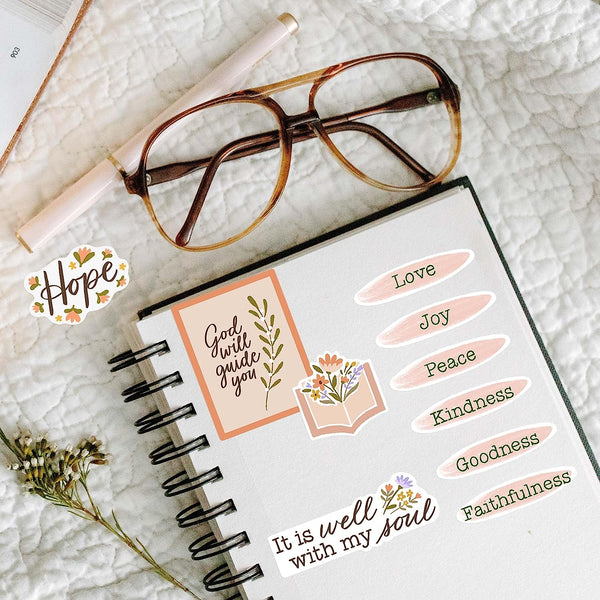 903
Hope
God
will
guide
you
Love
Joy
Peace
Kindness
Goodness
Faithfulness
It is well
with my soul